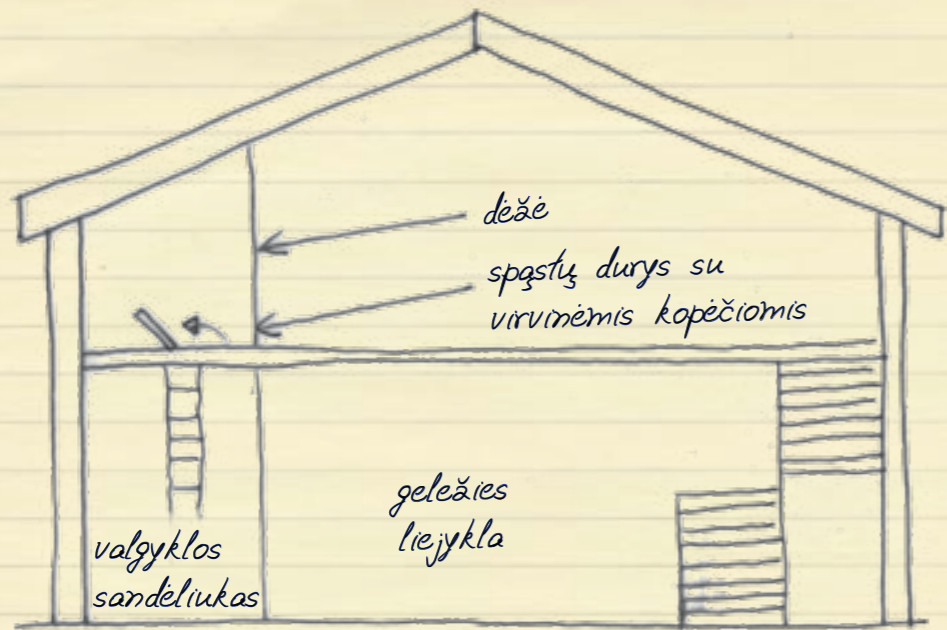 dėžė
spąstų durys su
virvinėmis kopėčiomis
geležies
liejykla
valgyklos
sandėliukas